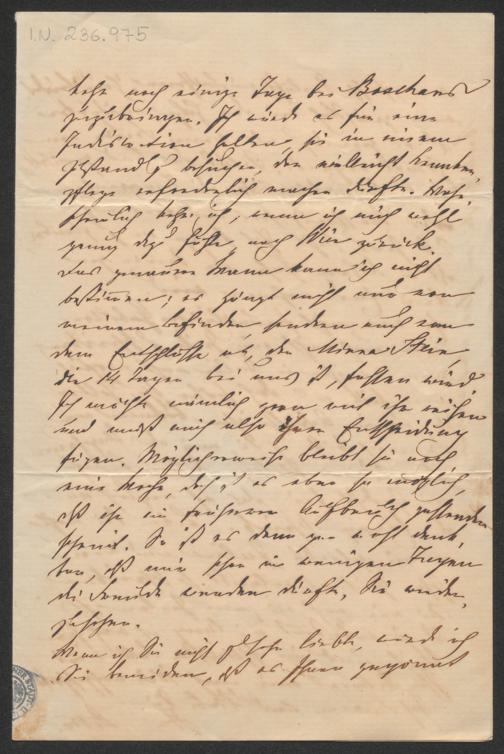 I.N. 236.975
noch einige Tage bei
zuzubringen. Ich würde es für eine
Indiscretion halten, sie in einem
Zustande zu besuchen, der vielleicht Kranken-
pflege erforderlich machen dürfte. Wahr-
scheinlich kehre ich, wenn ich mich wohl
genug dazu fühle, nach Wien zurück.
Das genauere Wann kann ich nicht
bestimmen; es hängt nicht nur von
meinem Befinden, sondern auch von
dem Entschlusse ab, den Minna
die 14 Tage bei uns ist, fassen wird
Ich möchte nämlich gern mit ihr reisen
und muß mich also ihrer Entscheidung
fügen. Möglicherweise bleibt sie noch
eine Woche, doch ist es eben so möglich,
daß ihr ein früherer Aufbruch
scheint. So ist es denn gar wohl denk-
bar, daß mir schon in wenigen Tagen
die Freude werden dürfte, Sie wieder-
zusehen.
Wenn ich Sie nicht so sehr liebte, würde ich
Sie beneiden, daß es Ihnen gegönnt